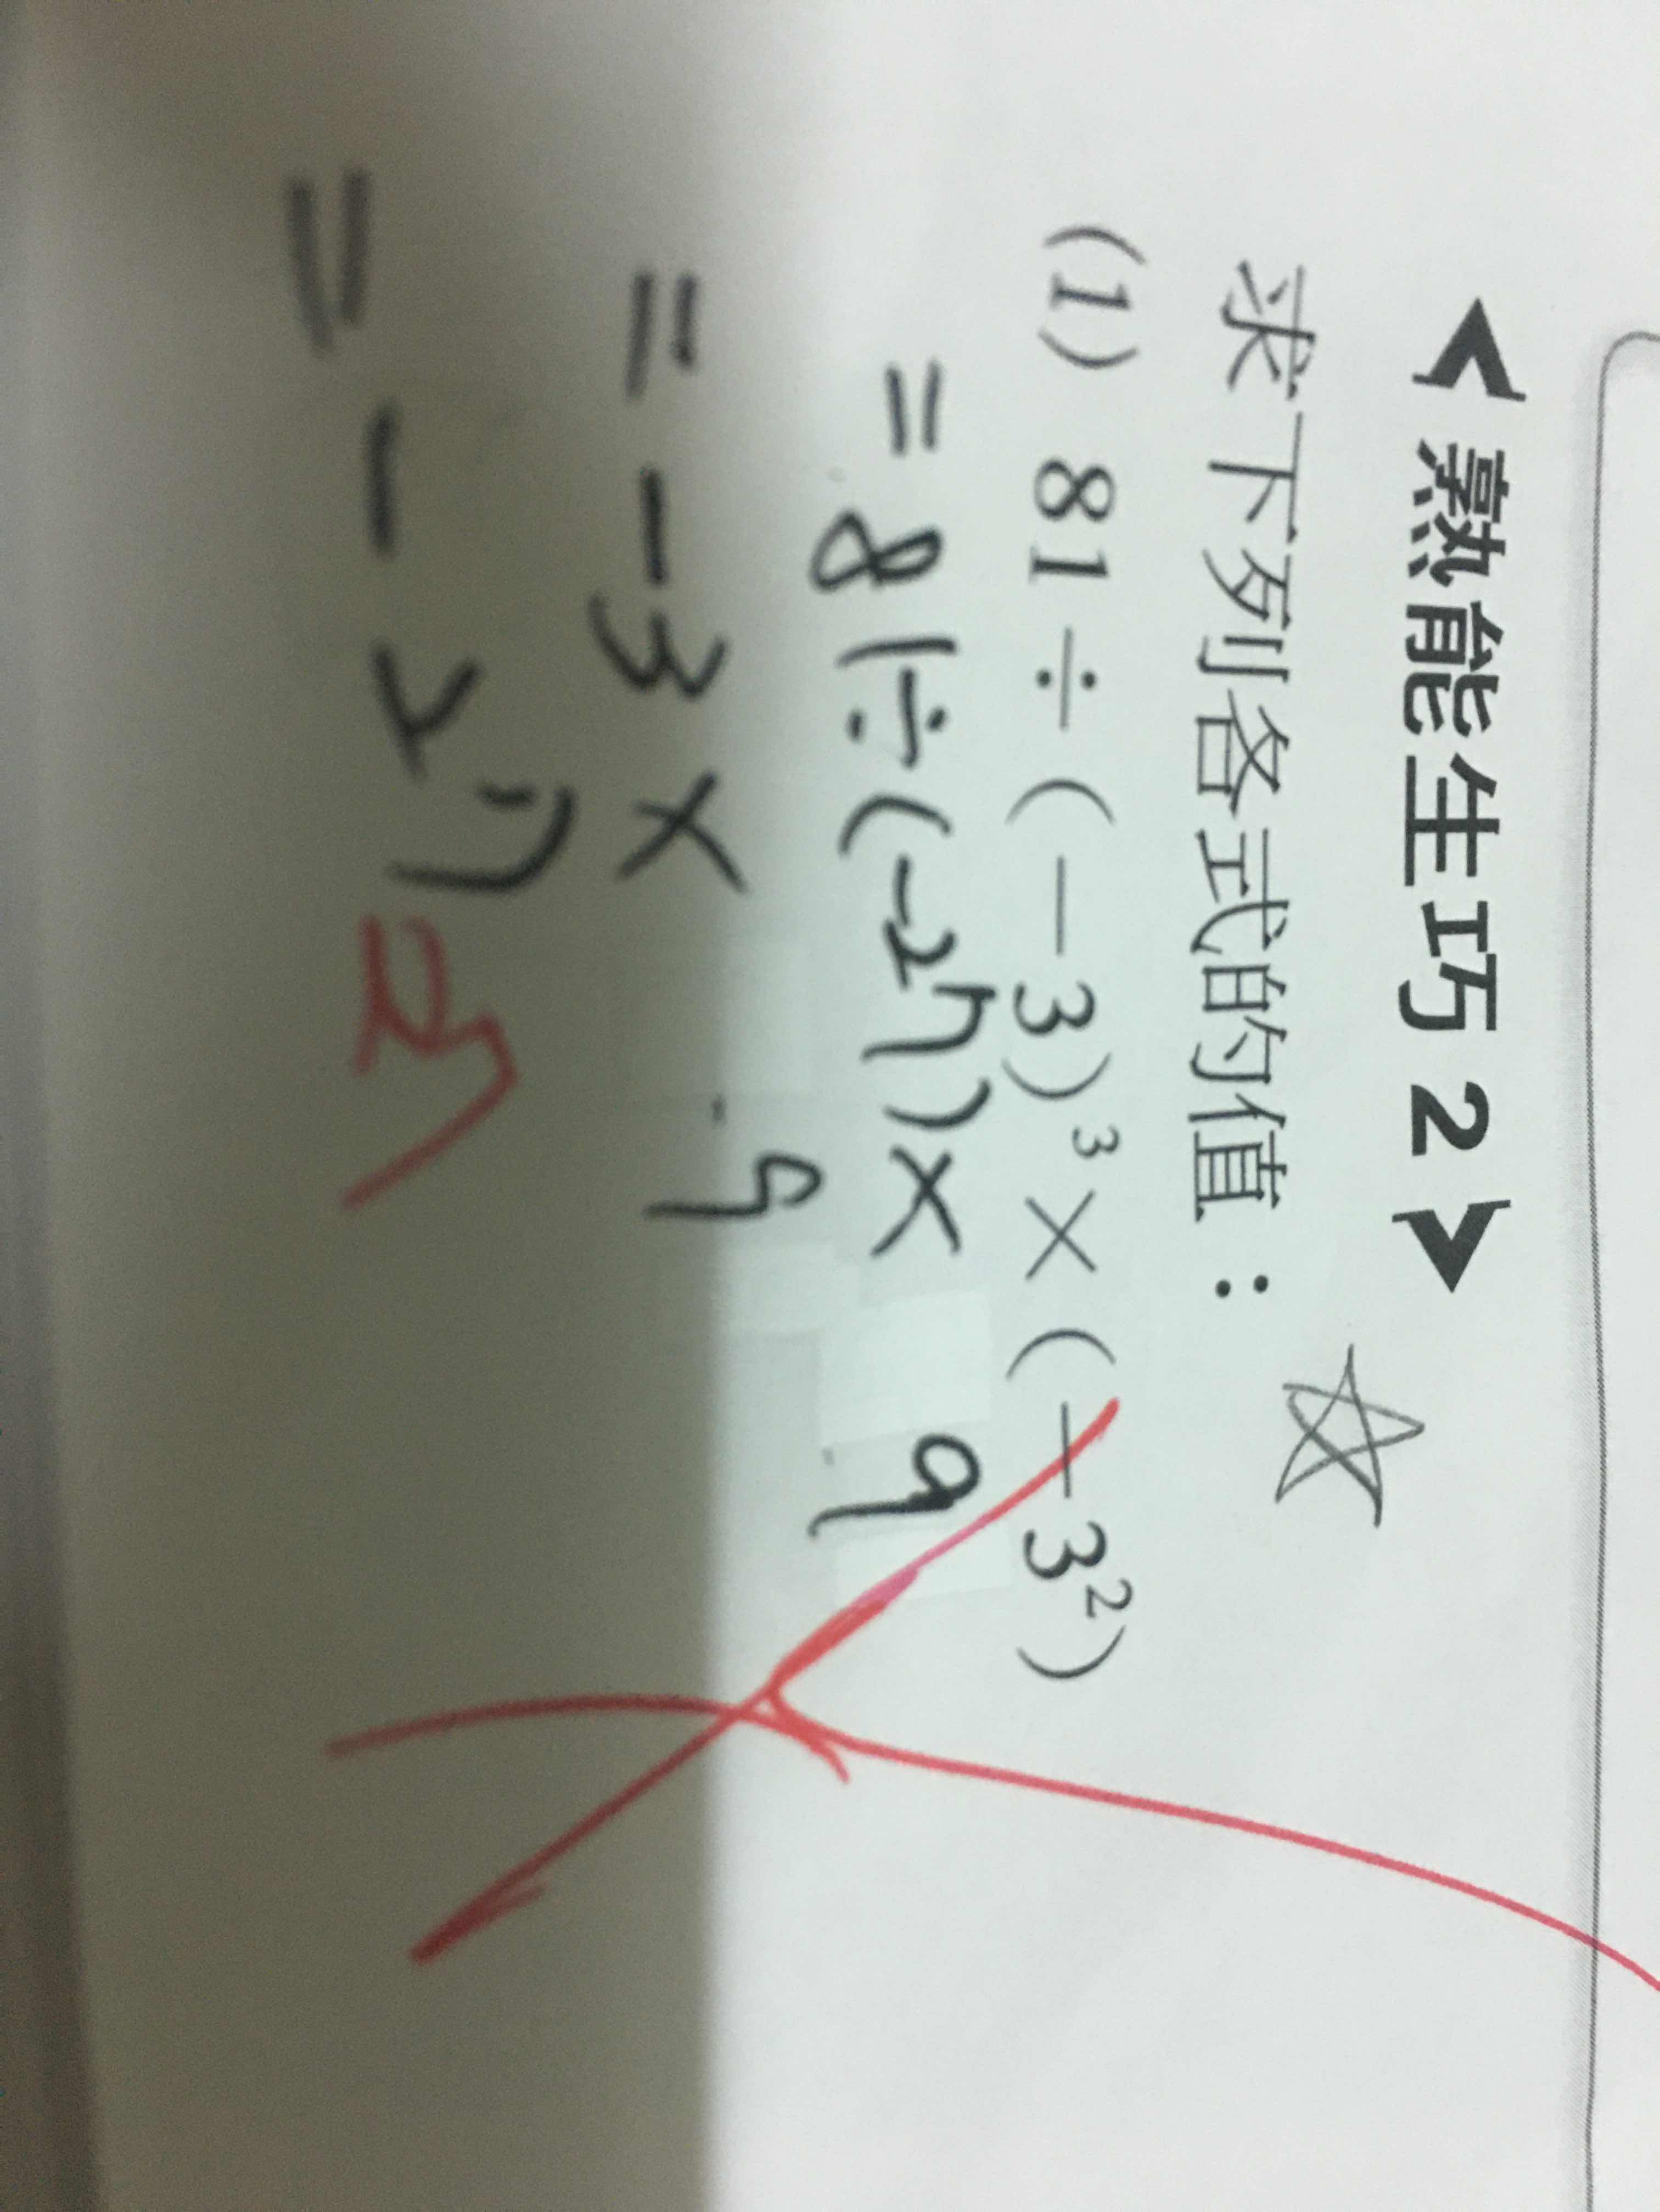 熟能生巧 2
求下列各式的值：
(1) 81÷(−3)³×(−3²)
=81÷(-27)×9
=-3×9
=-27